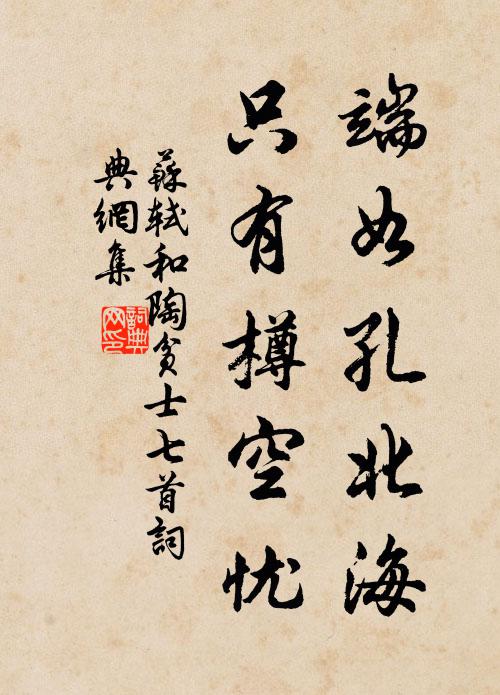 端如孔北海
只有樽空忧
蘇軾和陶貧士七首詞
典網集
詞典
网印